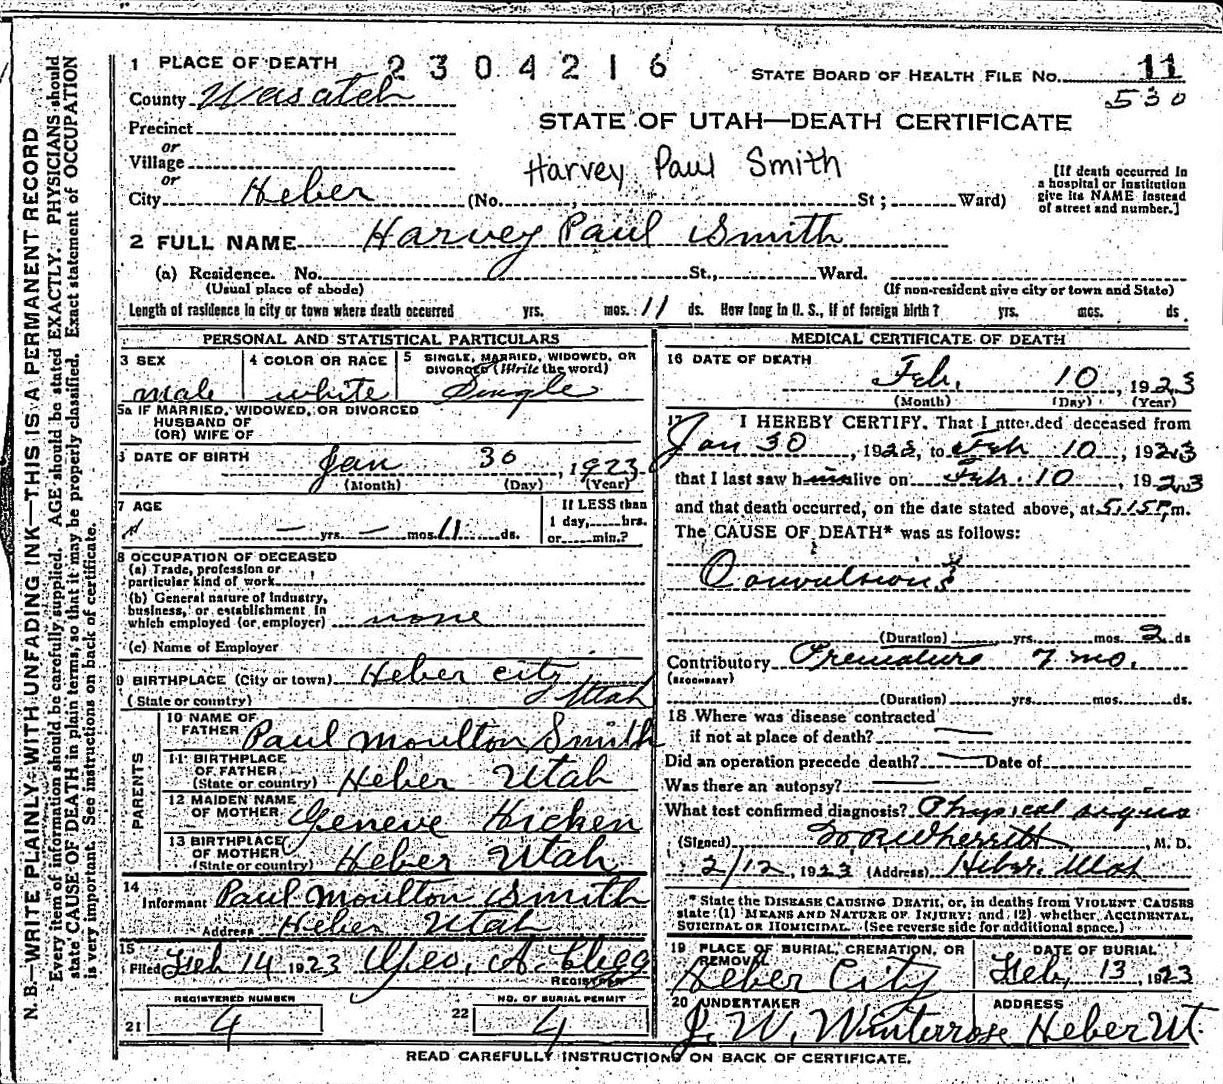 1 PLACE OF DEATH 2304216 STATE BOARD OF HEALTH FILE No. 11
County Wasatch 530
Precinct
or
Village
or
City Heber (No. , St ; Ward)
STATE OF UTAH—DEATH CERTIFICATE
Harvey Paul Smith
[If death occurred in
a hospital or institution
give its NAME instead
of street and number.]
2 FULL NAME Harvey Paul Smith
(a) Residence. No. St., Ward.
(Usual place of abode) (If non-resident give city or town and State)
Length of rasidence in city or town where death occurred yrs. mos. 11 ds. How long in U. S., if of foreign birth? yrs. mos. ds.
PERSONAL AND STATISTICAL PARTICULARS
3 SEX 4 COLOR OR RACE 5 SINGLE, MARRIED, WIDOWED, OR
DIVORCED (Write the word)
male white Single
5a IF MARRIED, WIDOWED, OR DIVORCED
HUSBAND OF
(OR) WIFE OF
DATE OF BIRTH Jan 30, 1923
(Month) (Day) (Year)
7 AGE If LESS than
1 day, hrs.
— yrs. — mos. 11 ds. or min.?
8 OCCUPATION OF DECEASED
(a) Trade, profession or
particular kind of work
(b) General nature of industry,
business, or establishment in
which employed (or employer) none
(c) Name of Employer
9 BIRTHPLACE (City or town) Heber City
(State or country) Utah
PARENTS
10 NAME OF
FATHER Paul Moulton Smith
11 BIRTHPLACE
OF FATHER
(State or country) Heber Utah
12 MAIDEN NAME
OF MOTHER Geneve Hicken
13 BIRTHPLACE
OF MOTHER
(State or country) Heber Utah
14
Informant Paul Moulton Smith
Address Heber Utah
15
Filed Feb 14 1923 Geo. A. Clegg
REGISTRAR
REGISTERED NUMBER NO. OF BURIAL PERMIT
21 4 22 4
MEDICAL CERTIFICATE OF DEATH
16 DATE OF DEATH
Feb. 10, 1923
(Month) (Day) (Year)
17 I HEREBY CERTIFY, That I attended deceased from
Jan 30, 1923, to Feb 10, 1923
that I last saw him alive on Feb. 10, 1923
and that death occurred, on the date stated above, at 5,15 P.m.
The CAUSE OF DEATH* was as follows:
Convulsions
(Duration) yrs. mos. 2 ds
Contributory Premature 7 mo.
(SECONDARY)
(Duration) yrs. mos. ds.
18 Where was disease contracted
if not at place of death? —
Did an operation precede death? — Date of
Was there an autopsy? —
What test confirmed diagnosis? Physical signs
(Signed) Wherritt, M. D.
2/12, 1923 (Address) Heber, Utah
* State the DISEASE CAUSING DEATH, or, in deaths from VIOLENT CAUSES
state (1) MEANS AND NATURE OF INJURY; and (2) whether ACCIDENTAL,
SUICIDAL OR HOMICIDAL. (See reverse side for additional space.)
19 PLACE OF BURIAL, CREMATION, OR
REMOVAL DATE OF BURIAL
Heber City Feb, 13, 1923
20 UNDERTAKER ADDRESS
J. W. Winterrose Heber Ut.
READ CAREFULLY INSTRUCTIONS ON BACK OF CERTIFICATE.
N. B.—WRITE PLAINLY—WITH UNFADING INK—THIS IS A PERMANENT RECORD
Every item of information should be carefully supplied. AGE should be stated EXACTLY. PHYSICIANS should
state CAUSE OF DEATH in plain terms, so that it may be properly classified. Exact statement of OCCUPATION
is very important. See instructions on back of certificate.